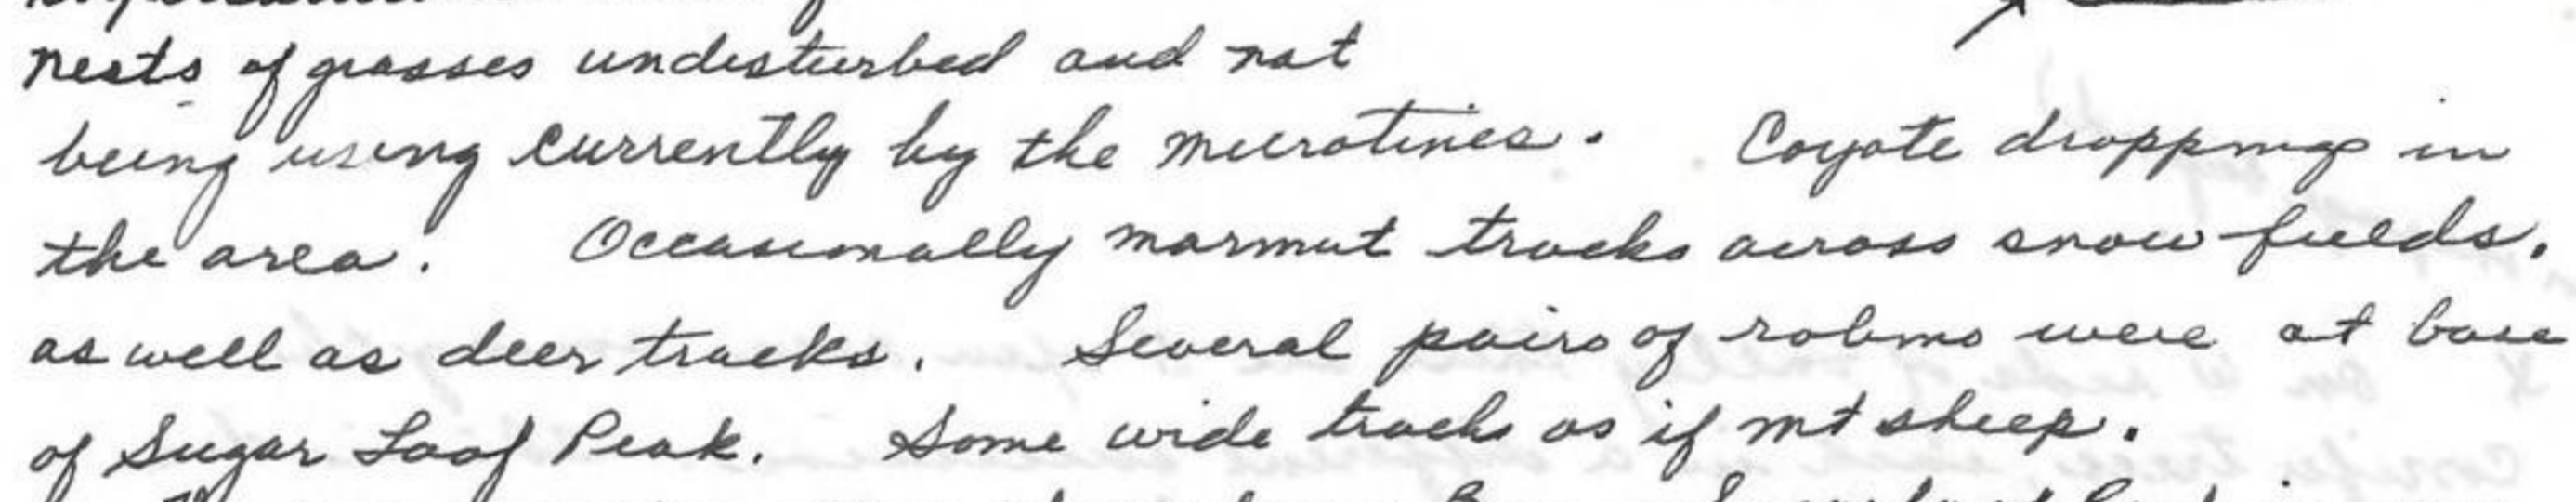 nests of grasses undisturbed and not
being using currently by the microtines. Coyote droppings in
the area. Occasionally marmut tracks across snow fields,
as well as deer tracks. Several pairs of robins were at base
of Sugar Loaf Peak. Some wide tracks as if mt sheep.